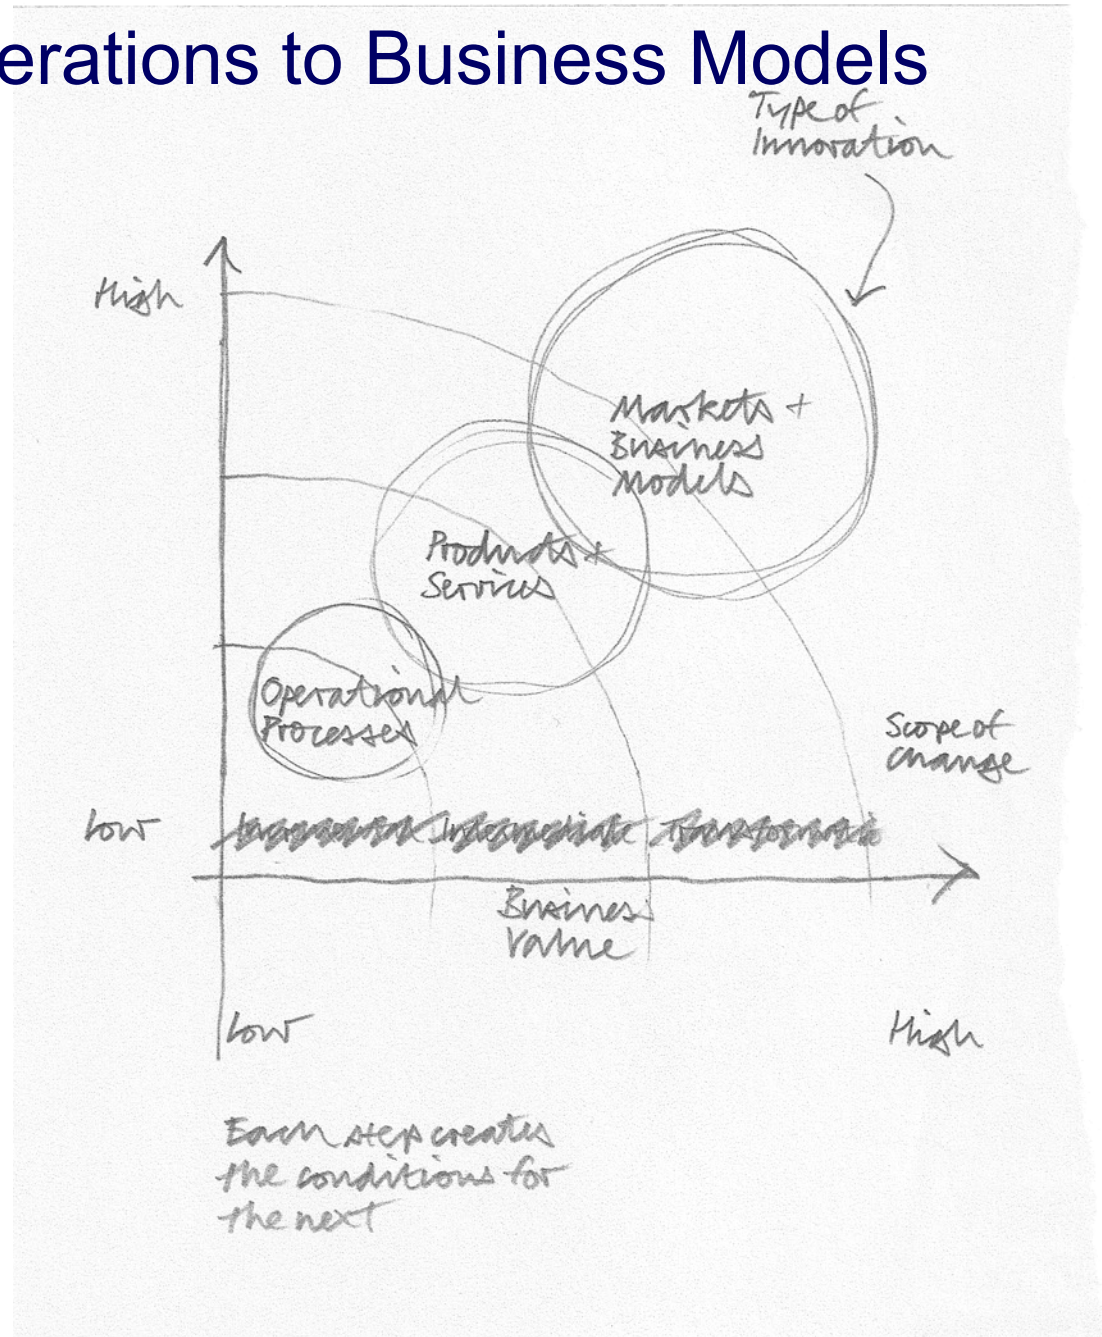 erations to Business Models
Type of
Innovation
High
Markets +
Business
Models
Products +
Services
Operational
Processes
Scope of
Change
Low
Incremental Intermediate
Business
Value
Low
High
Each step creates
the conditions for
the next